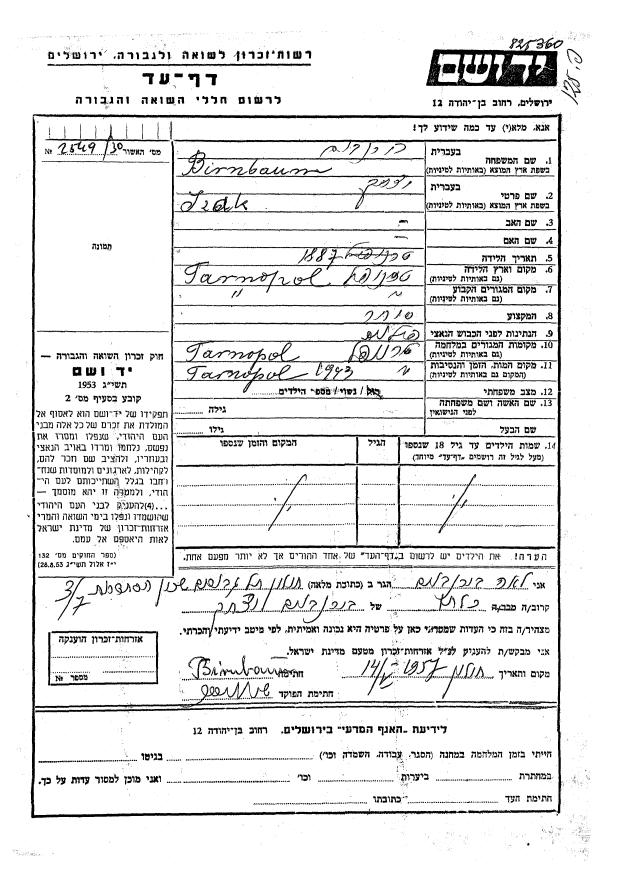 825360
רשות-זכרון לשואה ולגבורה, ירושלים
דף-עד
לרשום חללי השואה והגבורה
יד ושם
ירושלים, רחוב בן-יהודה 12
אנא, מלא(י) עד כמה שידוע לך!
מס' האשור № 2549/30
תמונה
1. שם המשפחה
בעברית בירנבוים
בשפת ארץ המוצא (באותיות לטיניות) Birnbaum
2. שם פרטי
בעברית יצחק
בשפת ארץ המוצא (באותיות לטיניות) Izak
3. שם האב —
4. שם האם —
5. תאריך הלידה 1887
6. מקום וארץ הלידה (גם באותיות לטיניות) טרנופול Tarnopol
7. מקום המגורים הקבוע (גם באותיות לטיניות) " "
8. המקצוע סוחר
9. הנתינות לפני הכבוש הנאצי פולנית
10. מקומות המגורים במלחמה (גם באותיות לטיניות) טרנופול Tarnopol
11. מקום המות, הזמן והנסיבות (המקום גם באותיות לטיניות) " 1943 Tarnopol
12. מצב משפחתי רוק/נשוי/מספר הילדים
13. שם האשה ושם משפחתה לפני הנישואין גילה
שם הבעל גילו
14. שמות הילדים עד גיל 18 שנספו (מעל לגיל זה רושמים "דף-עד" מיוחד)
הגיל
המקום והזמן שנספו
חוק זכרון השואה והגבורה —
יד ושם
תשי"ג 1953
קובע בסעיף מס' 2
תפקידו של יד-ושם הוא לאסוף אל
המולדת את זכרם של כל אלה מבני
העם היהודי, שנפלו ומסרו את
נפשם, נלחמו ומרדו באויב הנאצי
ובעוזריו, ולהציב שם וזכר להם,
לקהילות, לארגונים ולמוסדות שנח-
רבו בגלל השתייכותם לעם היהודי,
ולמטרה זו יהא מוסמך —
...(4) להעניק לבני העם היהודי
שהושמדו ונפלו בימי השואה והמרי
אזרחות-זכרון של מדינת ישראל
לאות היאספם אל עמם.
(ספר החוקים מס' 132
י"ז אלול תשי"ג 28.8.53)
הערה: את הילדים יש לרשום ב"דף-העד" של אחד ההורים אך לא יותר מפעם אחת.
אני לאה בירנבוים הגר ב (כתובת מלאה) חולון
קרוב/ה מבב/ה של בירנבוים יצחק
מצהיר/ה בזה כי העדות שמסרתי כאן על פרטיה היא נכונה ואמיתית, לפי מיטב ידיעתי והכרתי.
אני מבקש/ת להעניק לנ"ל אזרחות-זכרון מטעם מדינת ישראל.
מקום ותאריך חולון 1957 חתימה Birnbaum
חתימת הפוקד
אזרחות-זכרון הוענקה
מספר №
לידיעת "האגף המדעי" בירושלים, רחוב בן-יהודה 12
הייתי בזמן המלחמה במחנה (הסגר, עבודה, השמדה וכו') בגיטו
במחתרת ביערות וכו' ואני מוכן למסור עדות על כך.
חתימת העד כתובתו